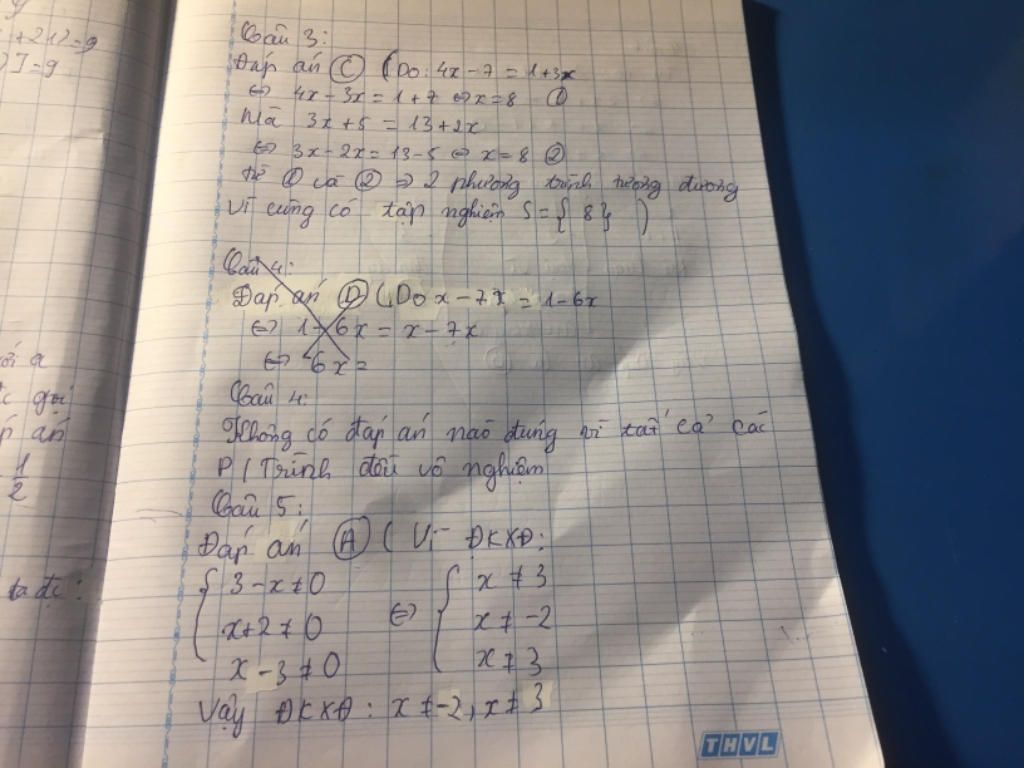 +21)=9
)]=9
Câu 3:
Đáp án C (Do: 4x-7 = 1+3x
⇔ 4x-3x = 1+7 ⇔ x=8 ①
Mà 3x+5 = 13+2x
⇔ 3x-2x = 13-5 ⇔ x=8 ②
từ ① và ② ⇒ 2 phương trình tương đương
vì cùng có tập nghiệm S={8} )
Câu 4:
Đáp án D (Do x-7x = 1-6x
⇔ 1-6x = x-7x
⇔ 6x=
Câu 4:
Không có đáp án nào đúng vì tất cả các
P/Trình đều vô nghiệm
Câu 5:
Đáp án A ( Vì ĐKXĐ:
{ 3-x≠0 ⇔ { x≠3
x+2≠0 x≠-2
x-3≠0 x≠3
Vậy ĐKXĐ: x≠-2, x≠3
a
án
1/2
ta đc:
THVL